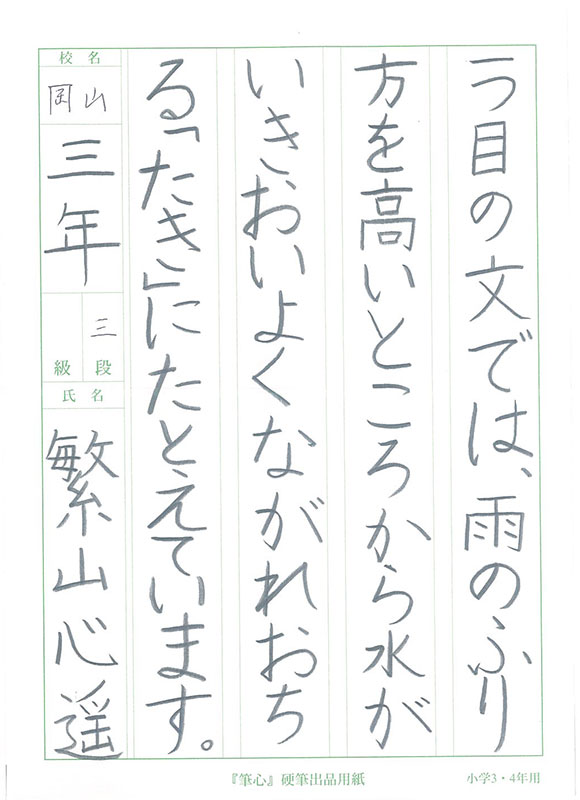 一つ目の文では、雨のふり
方を高いところから水が
いきおいよくながれおち
る「たき」にたとえています。
校名
岡山
三年
三
級 段
氏名
繁山心遥
『筆心』硬筆出品用紙
小学3・4年用